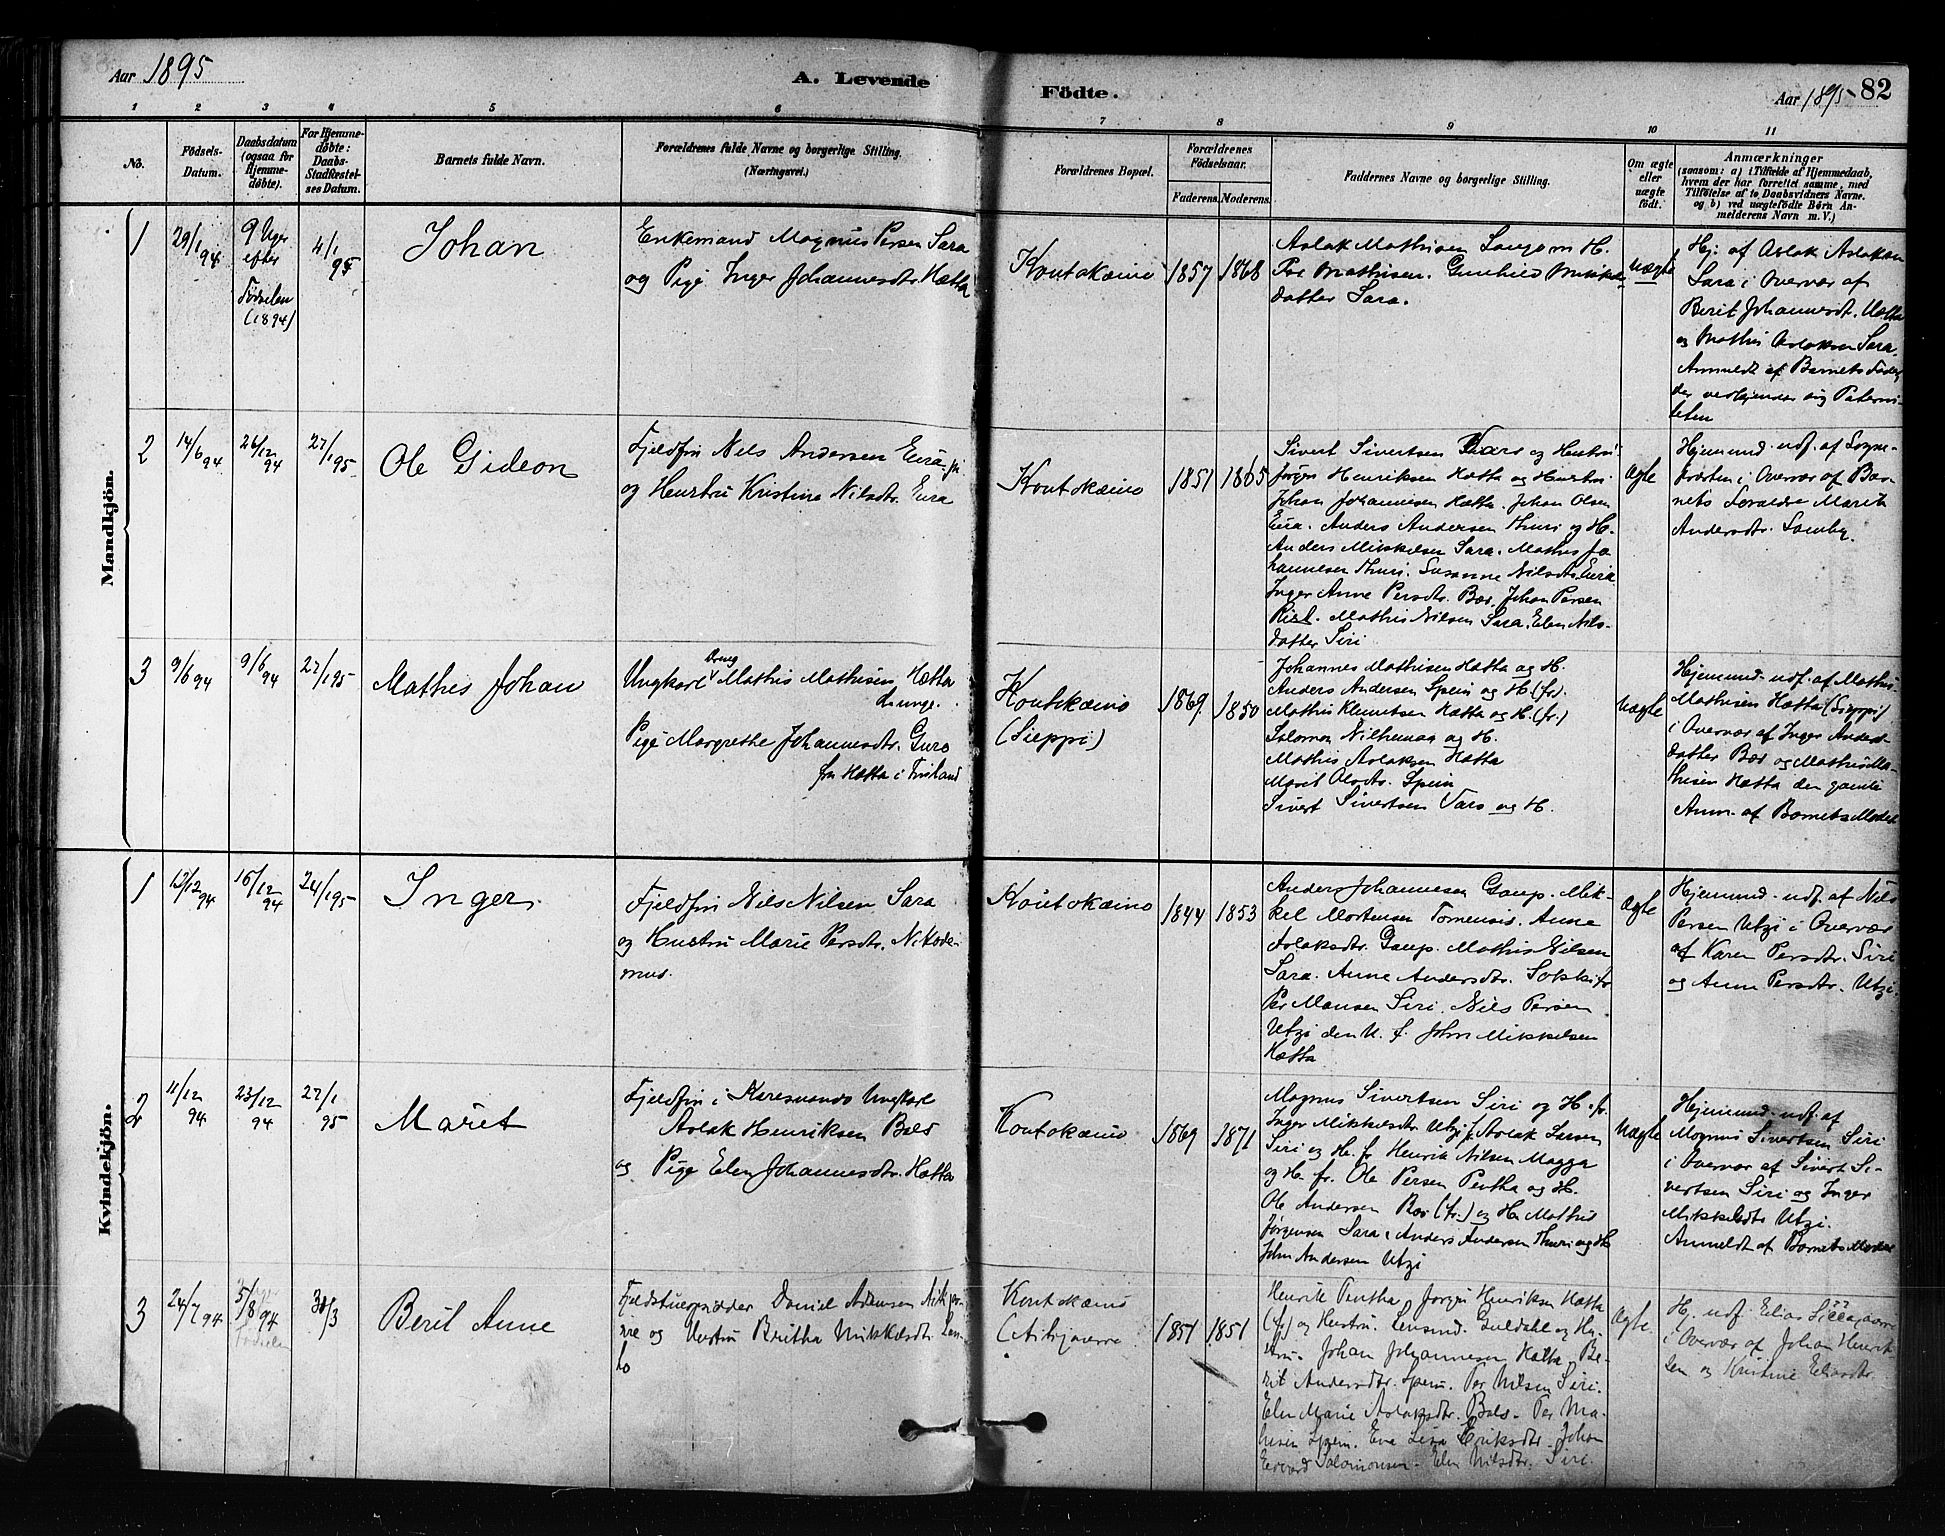 Aar 1895
A. Levende
Fødte.
Aar 1895
82
1 2 3 4 5 6 7 8 9 10 11
No.
Fødsels-
Datum.
Daabsdatum
(ogsaa for
Hjemme-
døbte).
For Hjemme-
døbte:
Daabs-
Stadfæstel-
ses Datum.
Barnets fulde Navn.
Forældrenes fulde Navne og borgerlige Stilling.
(Næringsvei.)
Forældrenes Bopæl.
Forældrenes
Fødselsaar.
Faderens. Moderens.
Faddernes Navne og borgerlige Stilling.
Om ægte
eller
uægte
født.
Anmærkninger
(saasom: a) i Tilfælde af Hjemmedaab,
hvem der har forrettet samme, med
Tilføielse af to Daabsvidners Navne.
og b) ved uægtefødte Børn An-
melderens Navn m. V.)
Mandkjøn.
1
29/1 94
9 Uger
efter
Fødselen
(1894)
4/1
95
Johan
Enkemand Magnus Persen Sara
og Pige Inger Johannesdtr. Hætta
Koutokæino
1857
1868
Aslak Mathisen Logje m H.
Per Mathisen. Gunhild Mikkels
datter Sara.
uægte
Hj. af Aslak Aslaksen
Sara i Overvær af
Berit Johannesdt. Hætta
og Mathis Aslaksen Sara.
Anmeldt af Barnets Fader,
der vedkjender sig Paterni-
teten
2
14/6 94
26/12
94
27/1 95
Ole Gideon
Fjeldfin Nils Andersen Eira
og Hustru Kristine Nilsdtr. Eira
Koutokæino
1851
1865
Sivert Sivertsen Vars og Hustru
Jørgen Henriksen Hætta og Hustru
Johan Johannesen Hætta. Johan Olsen
Eira. Anders Andersen Thuri og H.
Anders Mikkelsen Sara. Mathis Jo
hannesen Thuri. Susanne Nilsdtr. Eira
Inger Anne Persdtr. Bær. Johan Persen
Rist. Mathis Nilsen Sara. Elen Nils-
datter Siri
ægte
Hjemmed. udf. af Sogne-
præsten i Overvær af Bar-
nets Forældre Marit
Andersdtr. Samby.
3
9/6 94
9/6
94
27/1 95
Mathis Johan
Ungkarl Dreng Mathis Mathisen Hætta
Pige Margrethe Johannesdtr. Guro
fra Hætta i Finland
Koutokæino
(Sieppi)
1869.
1850
Johannes Mathisen Hætta og H.
Anders Andersen Spein og H. (fr.)
Mathis Klemetsen Hætta og H. (fr.)
Salomon Nilhemaa og H.
Mathis Aslaksen Hætta
Marit Olsdtr. Spein
Sivert Sivertsen Vars og H.
uægte
Hjemmed. udf. af Mathis
Mathisen Hætta (Sieppi)
i Overvær af Inger Anders-
datter Bær og Mathis Ma-
thisen Hætta den gamle
Anm. af Barnets Moder
Kvindekjøn.
1
12/12 94
16/12
94
24/1 95
Inger
Fjeldfin Nils Nilsen Sara
og Hustru Marie Persdtr. Nikode-
mus.
Koutokæino
1844
1853
Anders Johannesen Gaup. Mik-
kel Mortensen Tornensis. Anne
Aslaksdtr. Gaup. Mathis Nilsen
Sara. Anne Andersdtr. Sokki fr
Per Mansen Siri. Nils Persen
Utzi den U. f. John Mikkelsen
Hætta
ægte
Hjemmed. udf. af Nils
Persen Utzi i Overvær
af Karen Persdtr. Siri
og Anne Persdtr. Utzi.
2
11/12
94
23/12
94
27/1
95
Marit
Fjeldfin i Karesuando Ungkarl
Aslak Henriksen Bals
og Pige Elen Johannesdtr. Hætta
Koutokæino
1869
1871
Magnus Sivertsen Siri og H. fr.
Inger Mikkelsdtr Utzi f. Aslak Larsen
Siri og H. fr Henrik Nilsen Magga
og H. fr. Ole Persen Pentha og H.
Ole Andersen Bær (fr.) og H. Mathis
Jørgensen Sara. Anders Andersen Thuri og H
John Andersen Utzi
uægte
Hjemmed. udf. af
Magnus Sivertsen Siri
i Overvær af Sivert Si-
vertsen Siri og Inger
Mikkelsdtr Utzi.
Anmeldt af Barnets Moder
3
24/7 94
5/8 94
30/3
Berit Anne
Fjeldstueopsidder Daniel
og Hustru Britha Mikkelsdtr.
Koutokæino
1851
1851
Henrik Pentha. Jørgen Henriksen Hætta
(fr) og Hustru. Lensmd. Guldahl og Hu-
stru. Johan Johannesen Hætta. Be-
rit Andersdtr. Spein. Per Nilsen Siri.
Elen Marie Aslaksdtr. Bals. Per Ma-
thisen Spein. Eva Lisa Eriksdtr. Johan
Edvard Salomonsen. Elen Nilsdtr. Siri.
ægte
Hj. udf. Elias
i Overvær af Johan Henrik
sen og Kristine Eliasdtr.